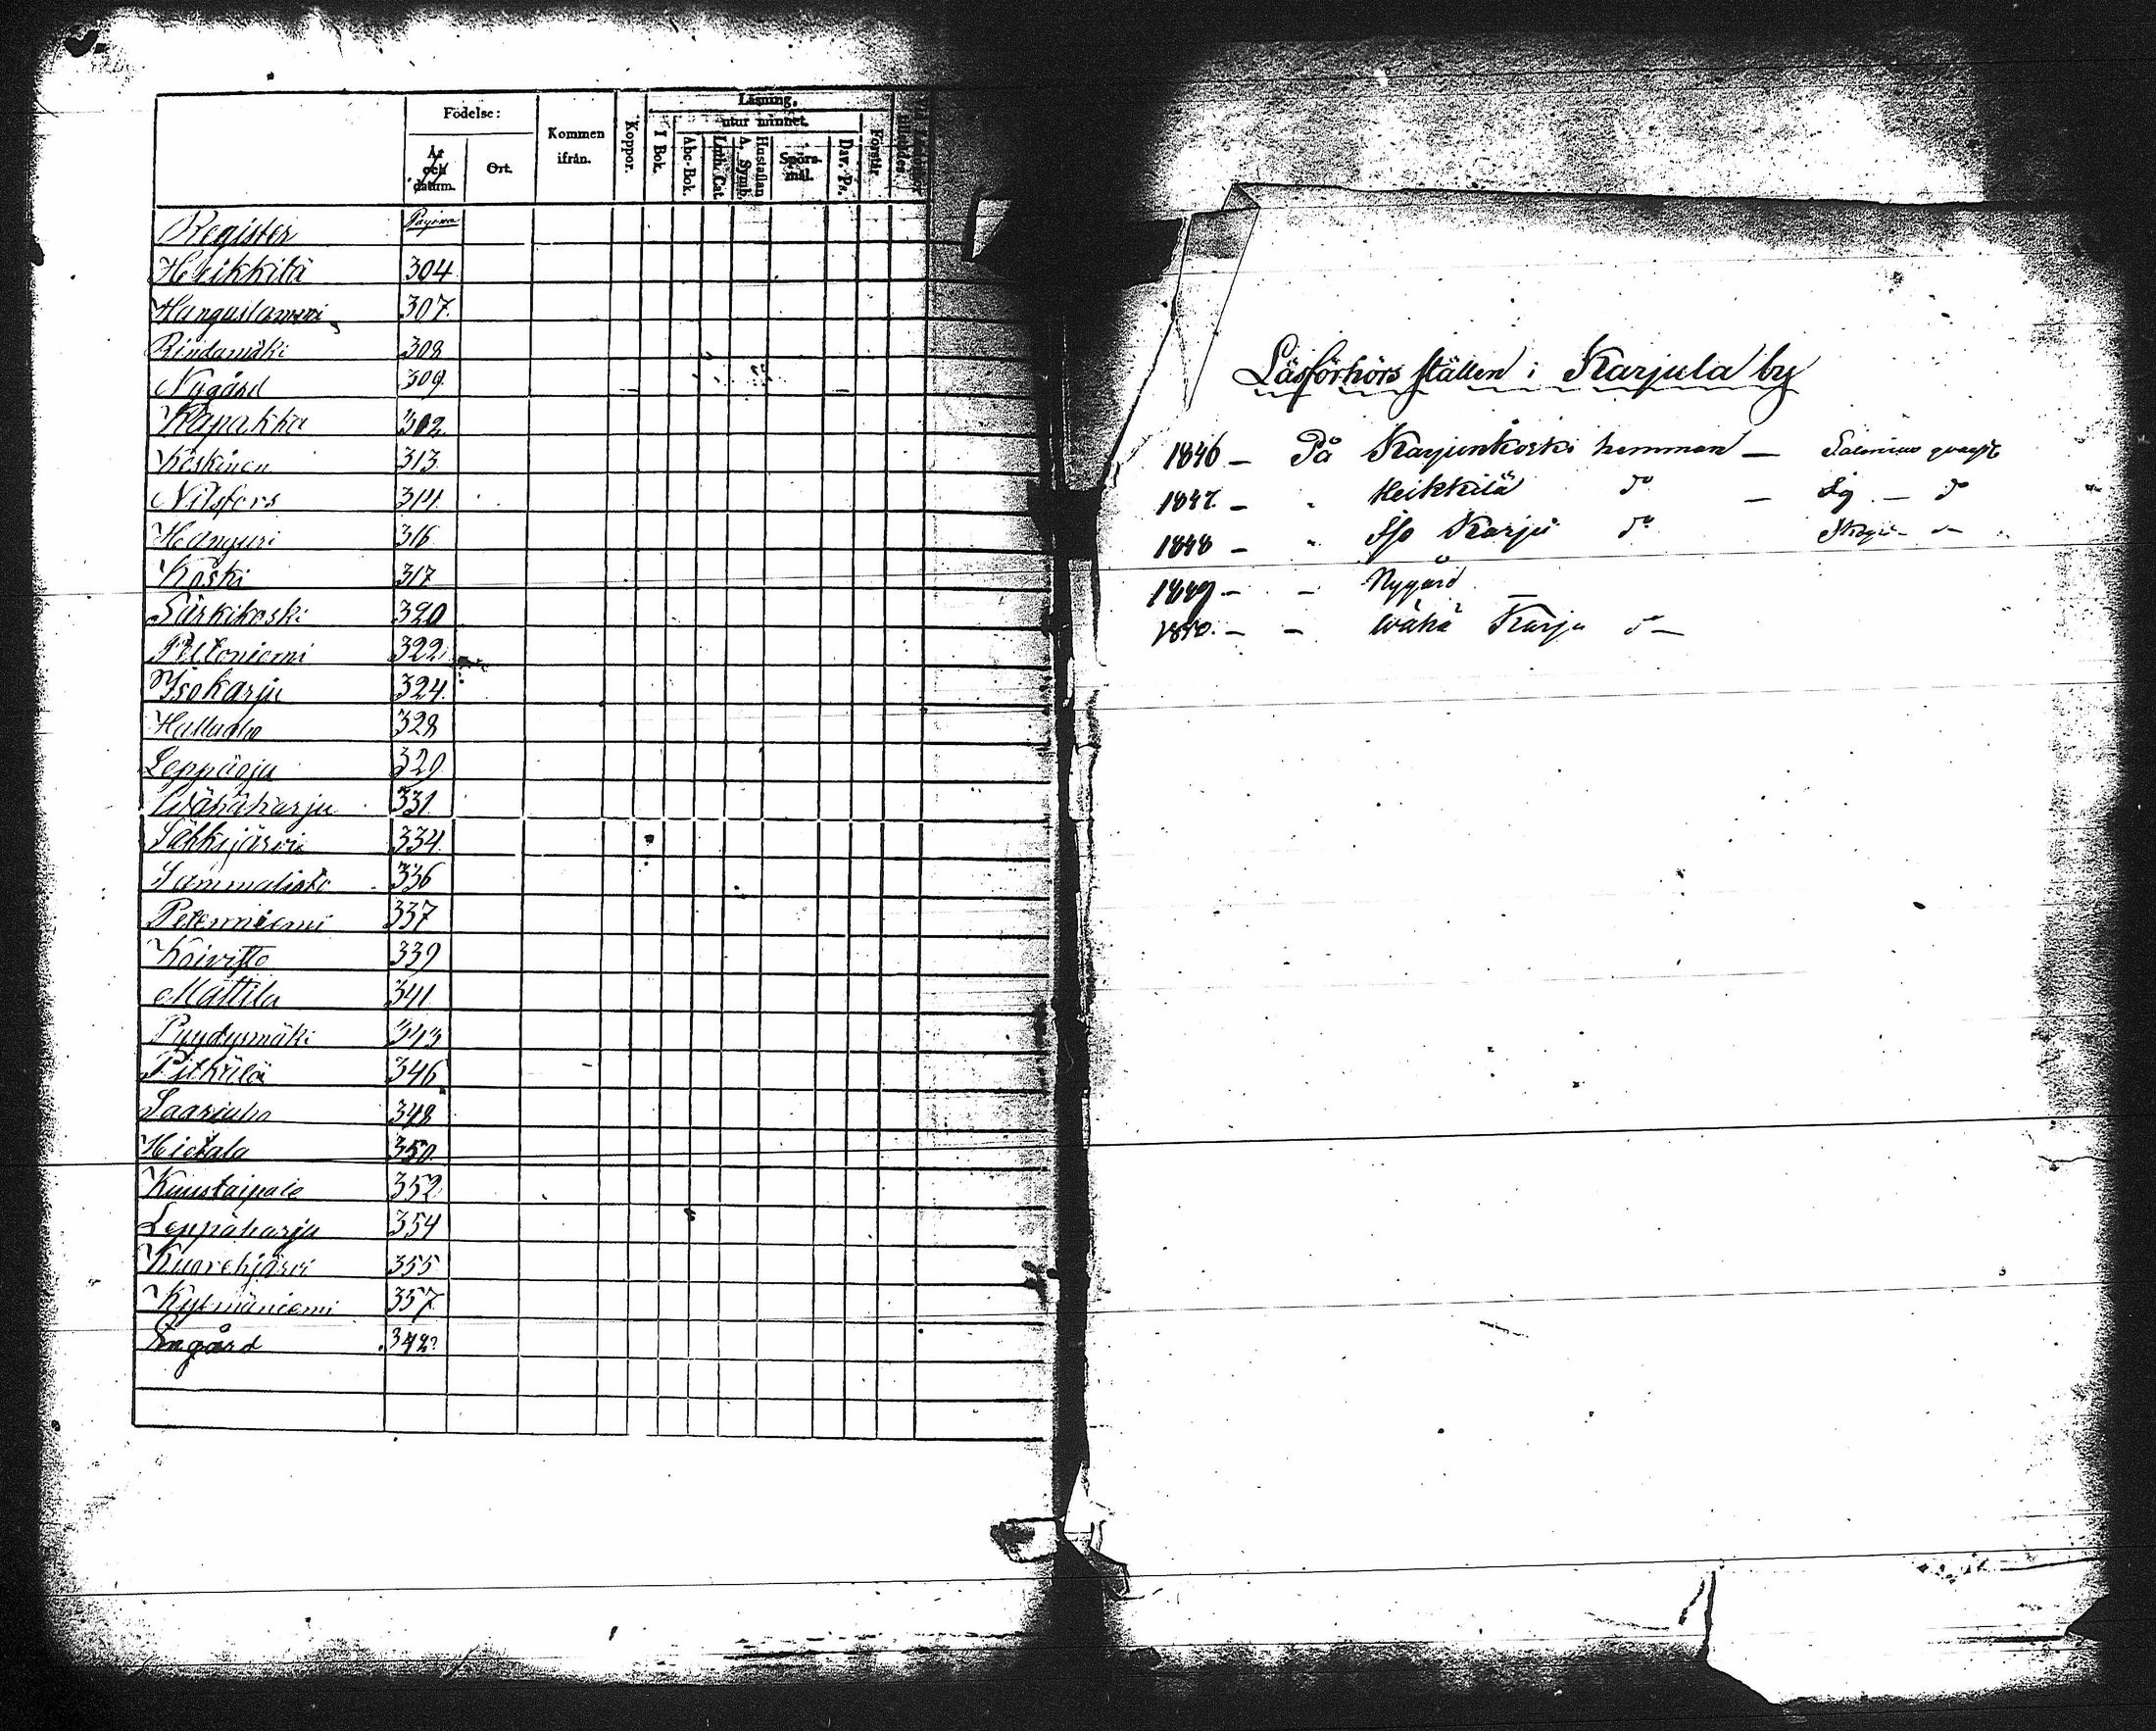 Födelse:
Kommen ifrån.
Koppor.
Läsning.
utur minnet.
År och datum.
Ort.
I Bok.
Abc-Bok.
Luth. Cat.
Hustaflan A. Symb.
Spörsmål.
Dav. Ps.
Förstår
Register Pagina
Heikkilä 304
Hangaslammi 307
Rindamäki 308
Nygård 309
Kapakka 312
Keskinen 313
Nilsfors 314
Hanguri 316
Koski 317
Särkikoski 320
Peltoniemi 322
Isokarju 324
Halluaho 328
Leppäoja 329
Wähäkarju 331
Säkkijärwi 334
Sammalisto 336
Petenniemi 337
Koivisto 339
Mattila 341
Pyydysmäki 343
Pitkälä 346
Saariaho 348
Hietala 350
Kuustaipale 352
Leppäharju 354
Kuorehjärwi 355
Kytmäniemi 357
Engård 342
Läsförhörs ställen i Karjula by
1846 – På Karjunkoski hemman –
1847 – " Heikkilä do –
1848 – " Iso Karju do
1849 – – Nygård
1850. – – Wähä Karju do –